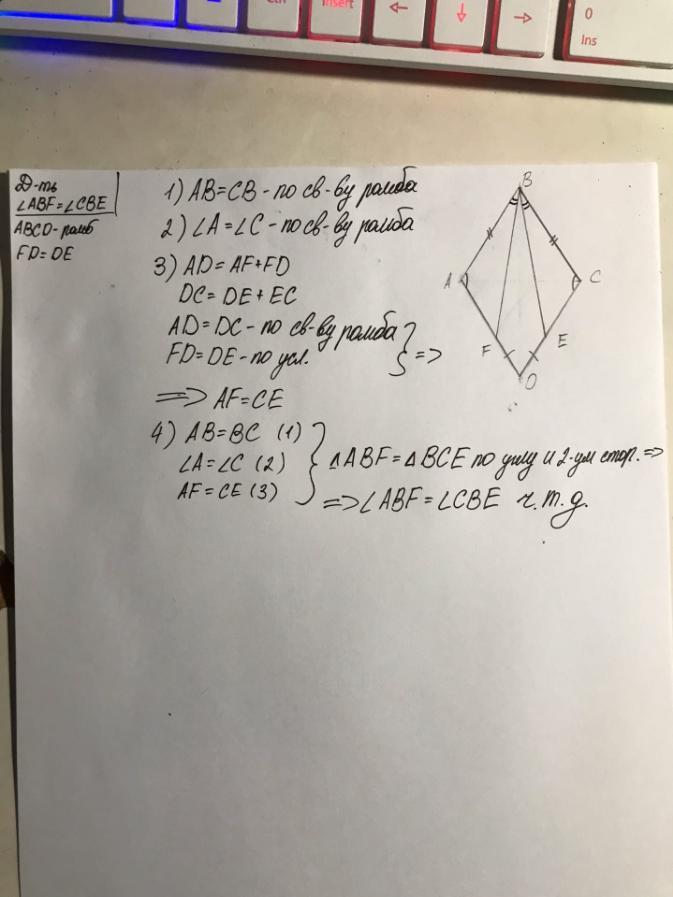 Insert
0
Ins
Д-ть
∠ABF=∠CBE
ABCD-ромб
FD=DE
1) AB=CB - по св-ву ромба
2) ∠A=∠C - по св-ву ромба
3) AD=AF+FD
DC=DE+EC
AD=DC - по св-ву ромба
FD=DE - по усл. } =>
=> AF=CE
4) AB=BC (1)
∠A=∠C (2) } ΔABF=ΔBCE по углу и 2-ум стор. =>
AF=CE (3)
=> ∠ABF=∠CBE ч.т.д.
B
A
C
F
E
D